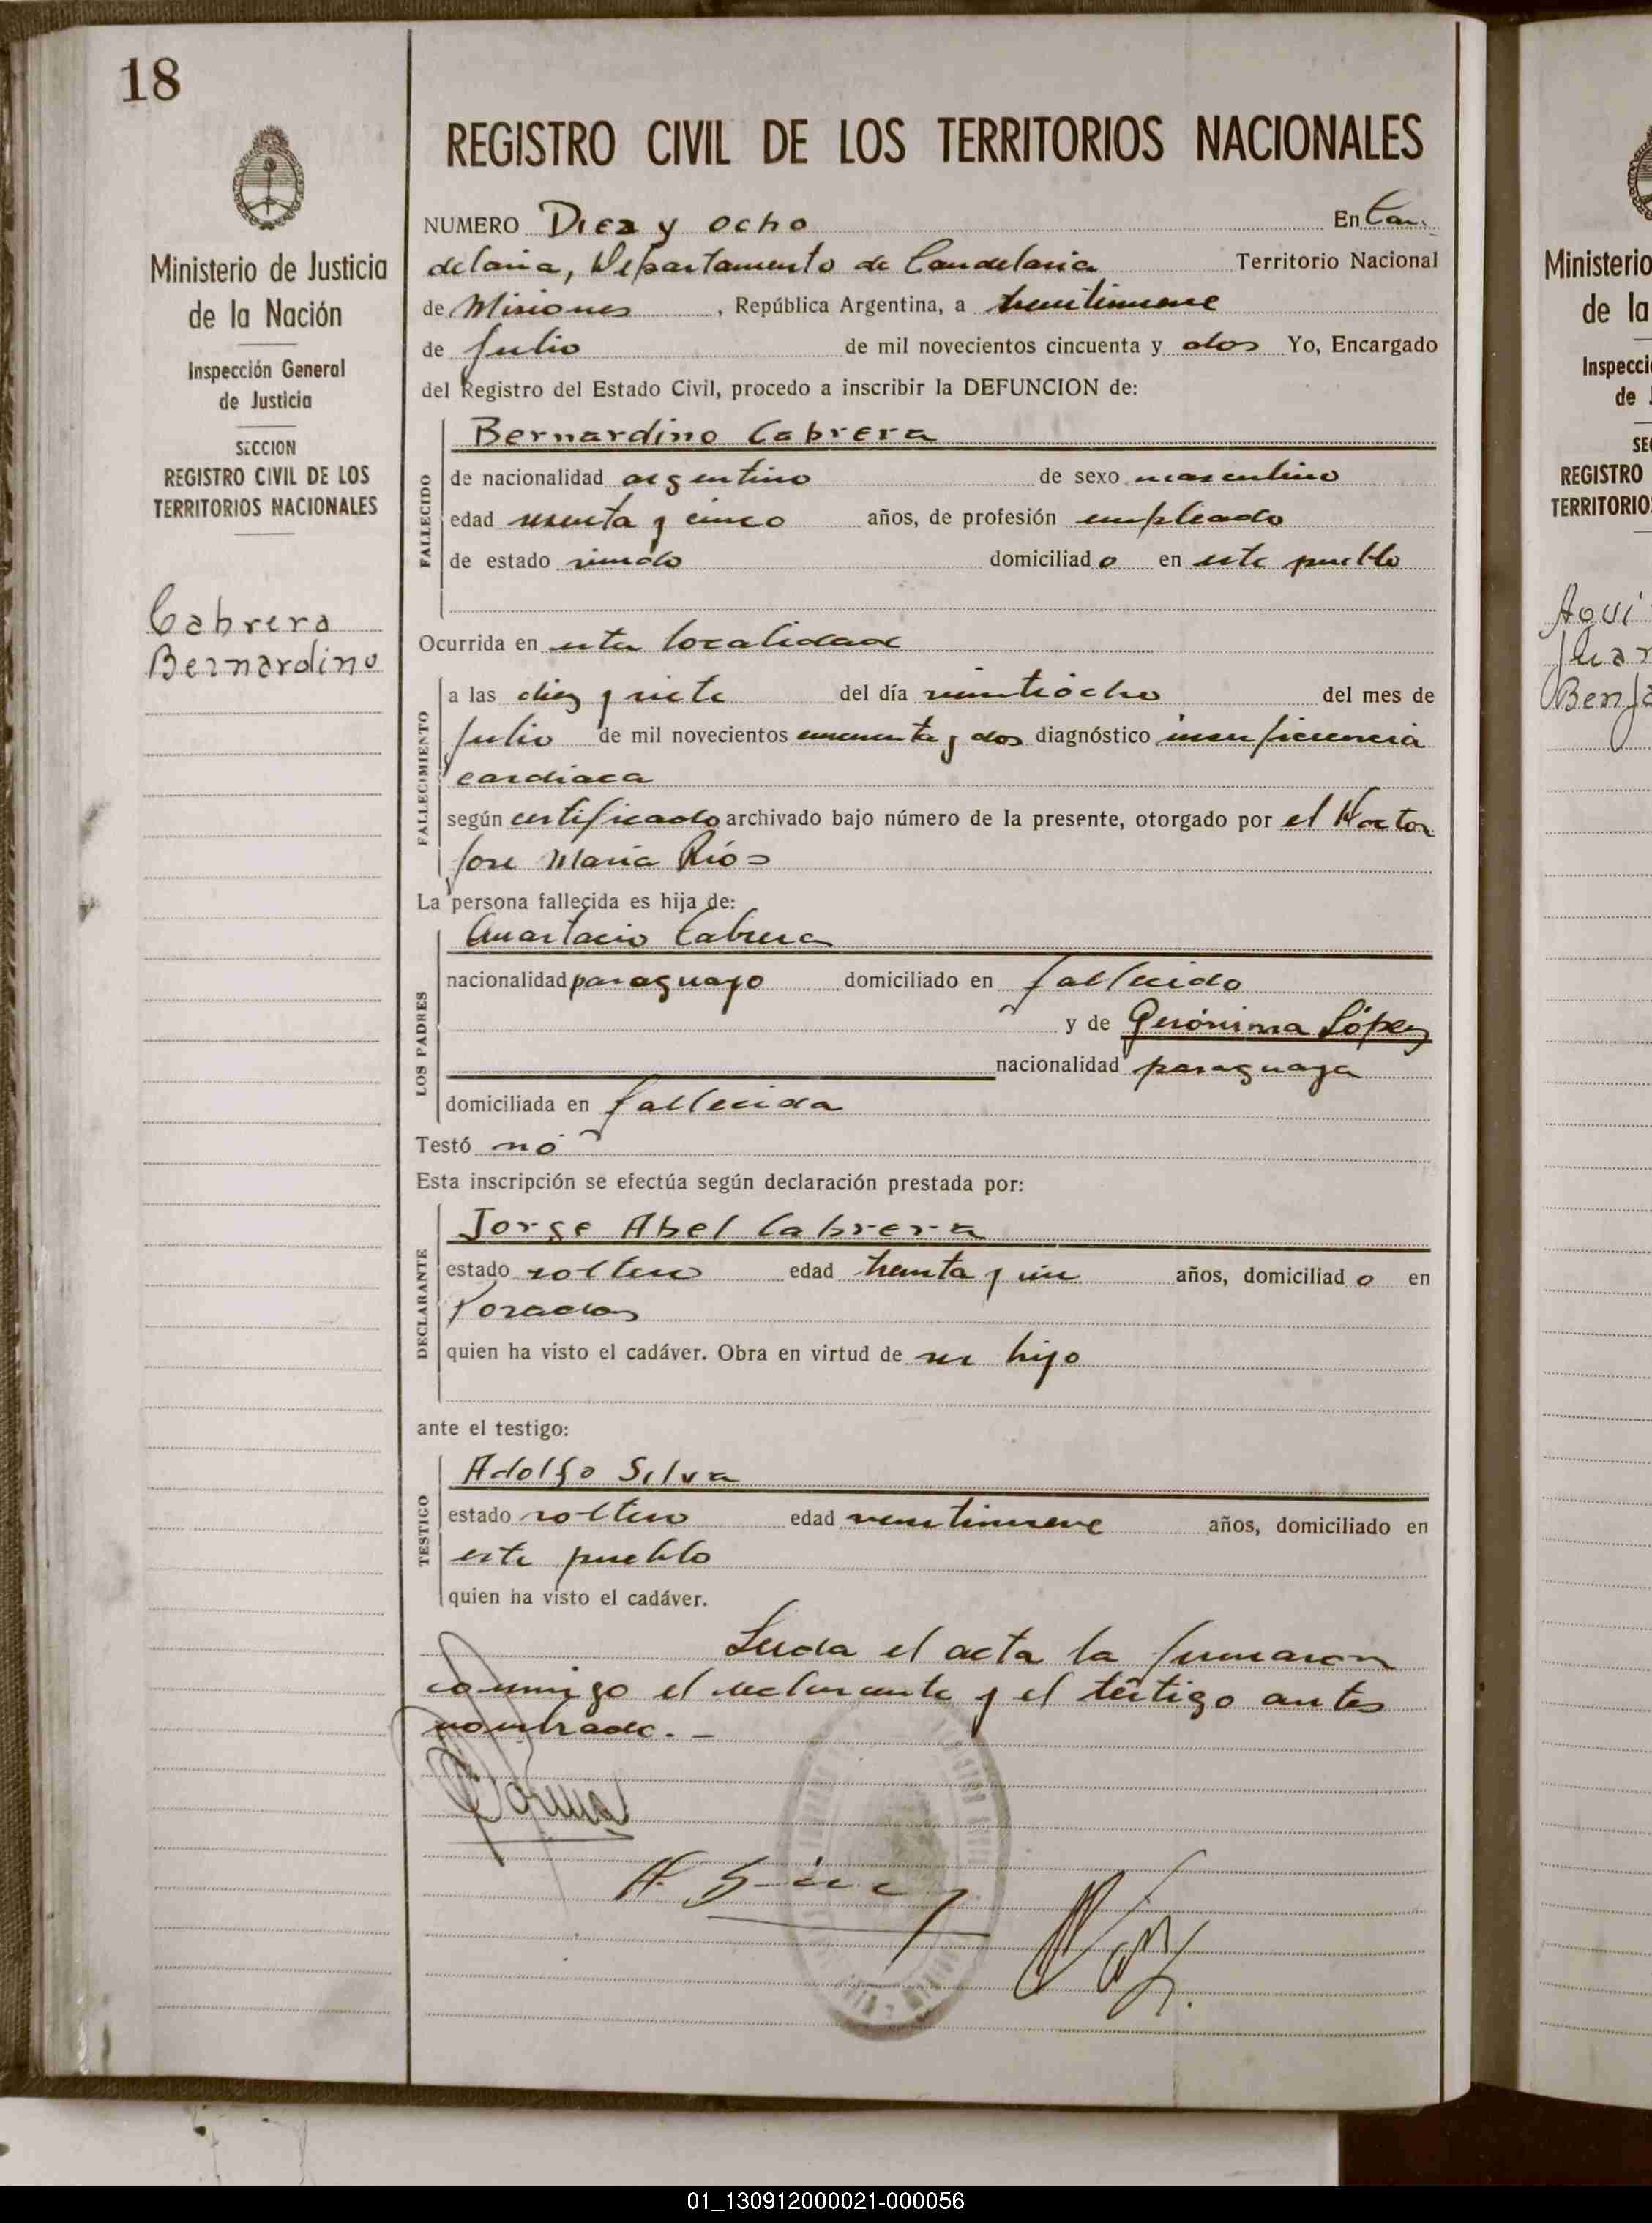 18
REGISTRO CIVIL DE LOS TERRITORIOS NACIONALES
Ministerio de Justicia
de la Nación
Inspección General
de Justicia
SECCION
REGISTRO CIVIL DE LOS
TERRITORIOS NACIONALES
Cabrera
Bernardino
NUMERO Diez y ocho En Can
delaria, Departamento de Candelaria Territorio Nacional
de Misiones, República Argentina, a veintinueve
de Julio de mil novecientos cincuenta y dos Yo, Encargado
del Registro del Estado Civil, procedo a inscribir la DEFUNCION de:
FALLECIDO
Bernardino Cabrera
de nacionalidad argentino de sexo masculino
edad sesenta y cinco años, de profesión empleado
de estado viudo domiciliado en este pueblo
Ocurrida en esta localidad
FALLECIMIENTO
a las diez y siete del día veintiocho del mes de
Julio de mil novecientos cincuenta y dos diagnóstico insuficiencia
cardiaca
según certificado archivado bajo número de la presente, otorgado por el Doctor
Jose Maria Ríos
La persona fallecida es hija de:
LOS PADRES
Anastacio Cabrera
nacionalidad paraguayo domiciliado en fallecido
y de Gerónima López
nacionalidad paraguaya
domiciliada en fallecida
Testó nó
Esta inscripción se efectúa según declaración prestada por:
DECLARANTE
Jorge Abel Cabrera
estado soltero edad treinta y un años, domiciliado en
Posadas
quien ha visto el cadáver. Obra en virtud de ser hijo
ante el testigo:
TESTIGO
Adolfo Silva
estado soltero edad veintinueve años, domiciliado en
este pueblo
quien ha visto el cadáver.
Leída el acta la firmaron
conmigo el declarante y el testigo antes
nombrado.-
Ministerio
de la
Inspecci
de J
SE
REGISTRO
TERRITORIO
Aqui
Juan
Benja
01_130912000021-000056